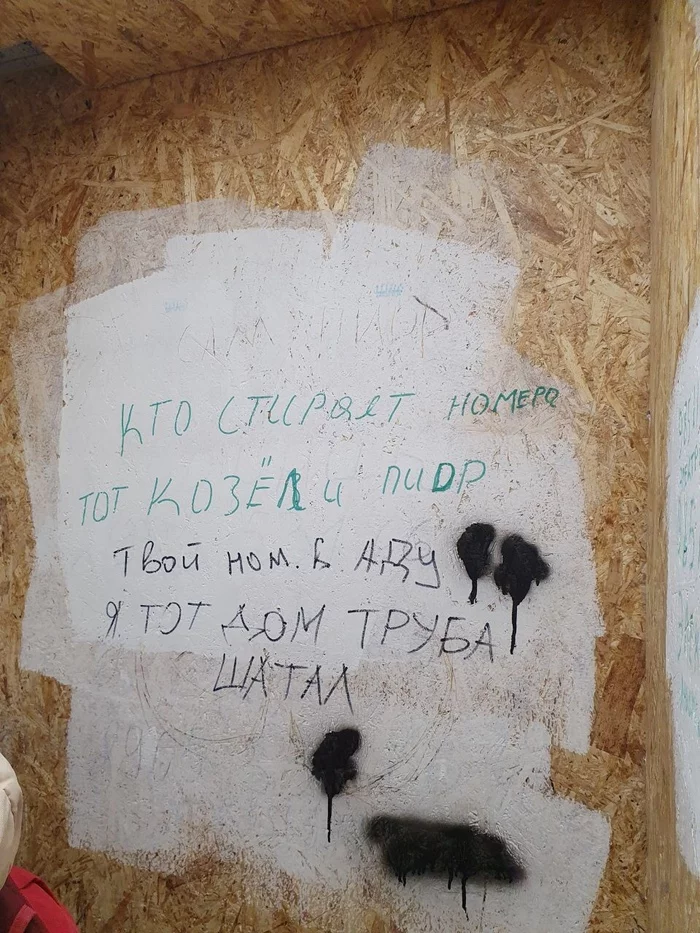 КТО СТИРАЕТ НОМЕРА
ТОТ КОЗЁЛ и ПИДР
Твой ном. в АДУ
Я ТОТ ДОМ ТРУБА
ШАТАЛ